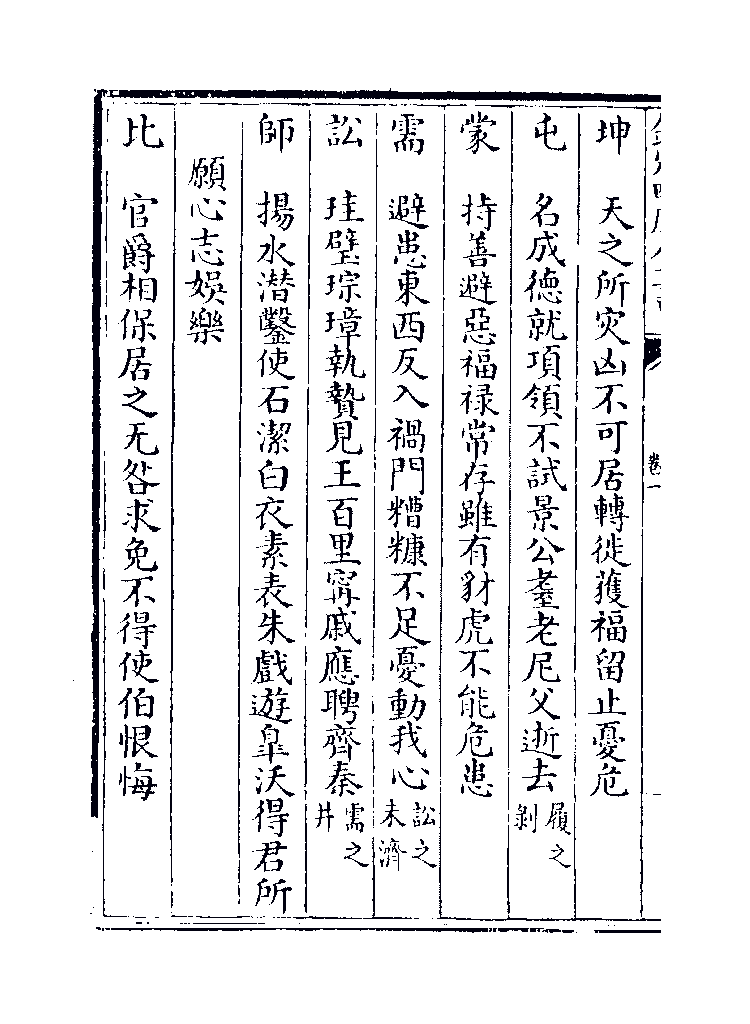 坤　天之所災凶不可居轉徙獲福留止憂危
屯　名成德就項領不試景公耄老尼父逝去履之剝
蒙　持善避惡福禄常存雖有豺虎不能危患
需　避患東西反入禍門糟糠不足憂動我心訟之未濟
訟　珪璧琮璋執贄見王百里甯戚應聘齊秦需之井
師　揚水潜鑿使石潔白衣素表朱戲遊臯沃得君所
願心志娛樂
比　官爵相保居之无咎求免不得使伯恨悔
卷一